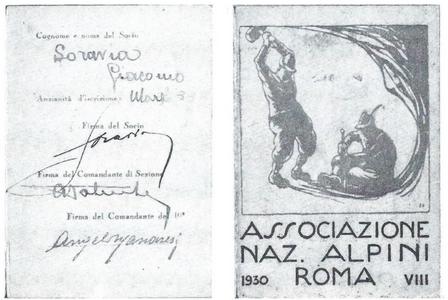 Cognome e nome del Socio
Soravia
Giacomo
Anzianità d'iscrizione:
Firma del Socio
Soravia
Firma del Comandante di Sezione
Firma del Comandante del 10º
Angelo Manaresi
ASSOCIAZIONE
NAZ. ALPINI
1930 ROMA VIII